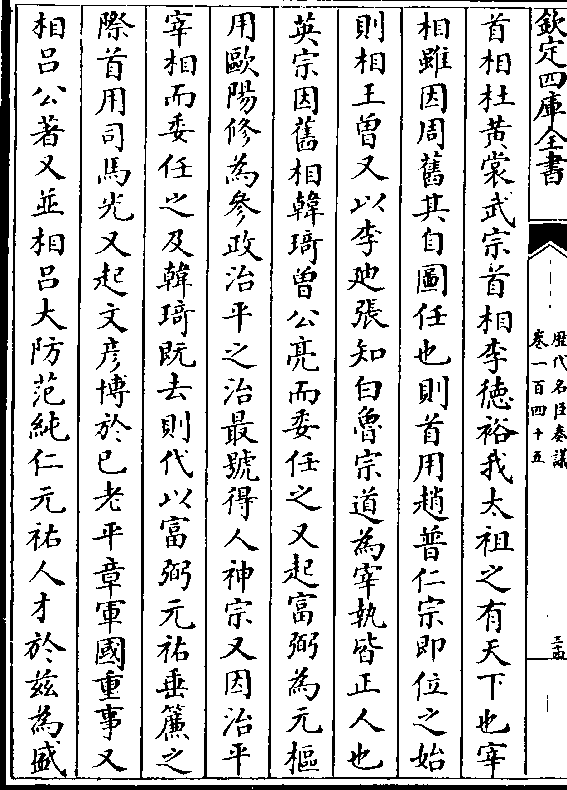 欽定四庫全書
歷代名臣奏議
卷一百四十五
首相杜黄裳武宗首相李徳裕我太祖之有天下也宰
相雖因周舊其自圖任也則首用趙普仁宗即位之始
則相王曽又以李廸張知白魯宗道為宰執皆正人也
英宗因舊相韓琦曽公亮而委任之又起富弼為元樞
用歐陽修為參政治平之治最號得人神宗又因治平
宰相而委任之及韓琦既去則代以富弼元祐垂簾之
際首用司馬光又起文彦博於已老平章軍國重事又
相吕公著又並相吕大防范純仁元祐人才於兹為盛